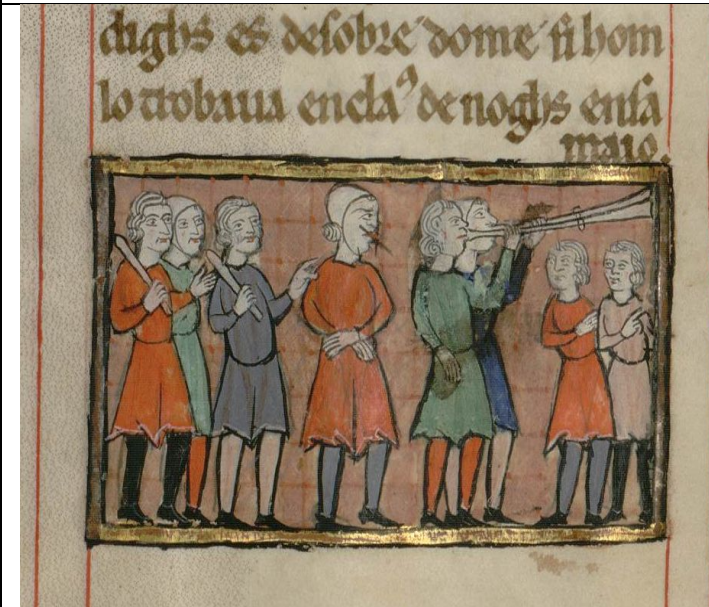 dighs es desobre dome si hom
lo trobaua encla⁹ de noghs ensa
maio.